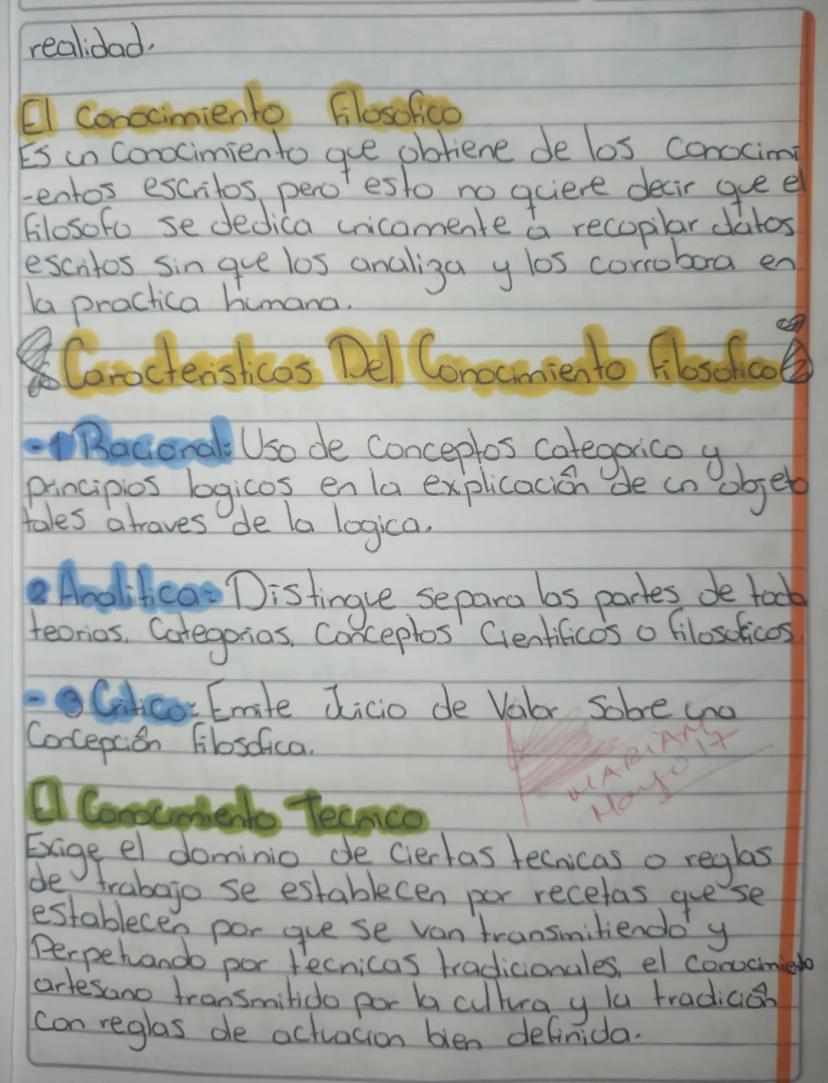 realidad.
El Conocimiento Filosofico
Es un Conocimiento que obtiene de los conocimi
-entos escritos, pero esto no quiere decir que el
filosofo se dedica unicamente a recopilar datos
escritos sin que los analiza y los corrobora en
la practica humana.
Caracteristicas Del Conocimiento Filosofico
-1 Racional: Uso de conceptos categorico y
principios logicos en la explicación de un objeto
tales atraves de la logica.
2 Analitica: Distingue separa las partes de toda
teorias. Categorias. Conceptos Cientificos o filosoficos.
- 3 Critico: Emite Juicio de Valor Sobre una
Concepción filosofica.
MARIAM
Mayo 17
El Conocimiento Tecnico
Exige el dominio de ciertas tecnicas o reglas
de trabajo se establecen por recetas que se
establecen por que se van transmitiendo y
Perpetuando por tecnicas tradicionales, el conocimiento
artesano transmitido por la cultura y la tradición
con reglas de actuacion bien definida.